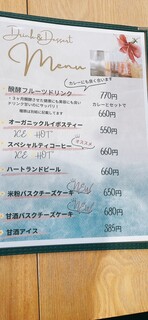 Drink & Dessert
Menu
カレーにも良く合います
醗酵フルーツドリンク 770円
カレーとセットで
660円
オーガニックルイボスティー 550円
ICE HOT
オススメ
スペシャルティコーヒー 660円
ICE HOT
ハートランドビール 660円
米粉バスクチーズケーキ 650円
甘酒バスクチーズケーキ 680円
甘酒アイス 385円